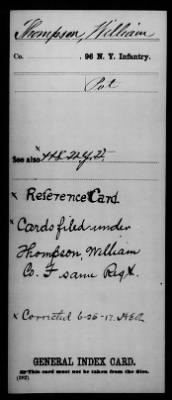 Thompson, William
Co. , 96 N. Y. Infantry.
Pvt
See also
x Reference Card
x Cards filed under
Thompson, William
Co. F same Regt.
x Corrected 6-26-17.
GENERAL INDEX CARD.
This card must not be taken from the files.